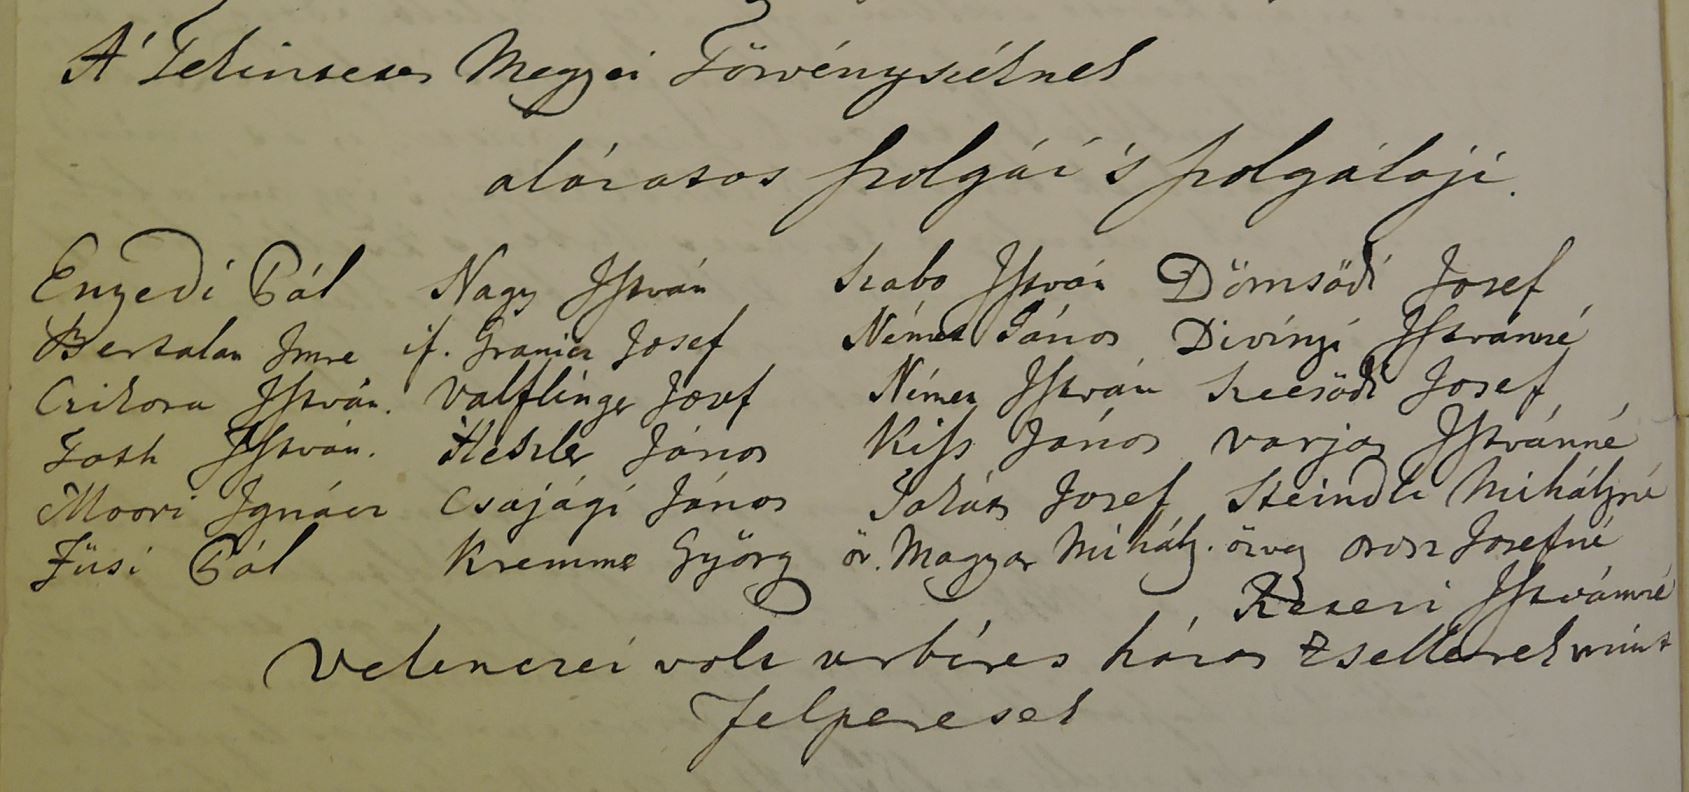 A' Tekintetes Megyei Törvényszéknek
alázatos szolgái 's szolgálóji.
Enyedi Pál Nagy István Szabo István Dömsödi Josef
Bertalan Imre if. Granicz Josef Német János Divinyi Istvánné
Czikora István. Valflinger Josef Német István Szecsödi Josef
Toth István. Heszler János Kiss János Varjas Istvánné
Moori Ignácz Csajági János Takáts Josef Steindli Mihályné
Füsi Pál Kremme György ör. Magyar Mihály. özveg Orosz Josefné
Istvánné
Velenczei volt urbéres házas Zsellérek mint
felperesek